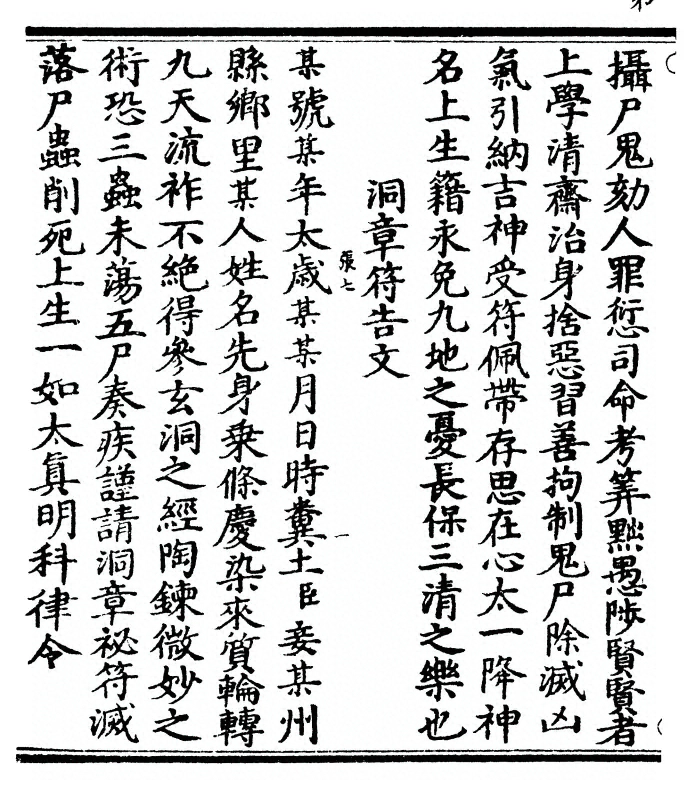 攝尸鬼劾人罪愆司命考筭黜愚陟賢賢者
上學清齋治身捨惡習善拘制鬼尸除滅凶
氣引納吉神受符佩帶存思在心太一降神
名上生籍永免九地之憂長保三清之樂也
洞章符告文
張七
某號某年太歲某某月日時糞土臣妾某州
縣鄉里某人姓名先身乗條慶染來質輪轉
九天流祚不絶得參玄洞之經陶鍊微妙之
術恐三蟲未蕩五尸奏疾謹請洞章祕符滅
落尸蟲削死上生一如太真明科律令